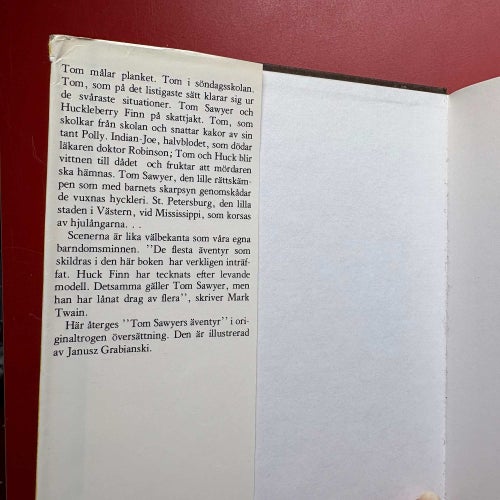 Tom målar planket. Tom i söndagsskolan.
Tom, som på det listigaste sätt klarar sig ur
de svåraste situationer. Tom Sawyer och
Huckleberry Finn på skattjakt. Tom, som
skolkar från skolan och snattar kakor av sin
tant Polly. Indian-Joe, halvblodet, som dödar
läkaren doktor Robinson; Tom och Huck blir
vittnen till dådet och fruktar att mördaren
ska hämnas. Tom Sawyer, den lille rättskäm-
pen som med barnets skarpsyn genomskådar
de vuxnas hyckleri. St. Petersburg, den lilla
staden i Västern, vid Mississippi, som korsas
av hjulångarna. . .
Scenerna är lika välbekanta som våra egna
barndomsminnen. ''De flesta äventyr som
skildras i den här boken har verkligen inträf-
fat. Huck Finn har tecknats efter levande
modell. Detsamma gäller Tom Sawyer, men
han har lånat drag av flera'', skriver Mark
Twain.
Här återges ''Tom Sawyers äventyr'' i ori-
ginaltrogen översättning. Den är illustrerad
av Janusz Grabianski.